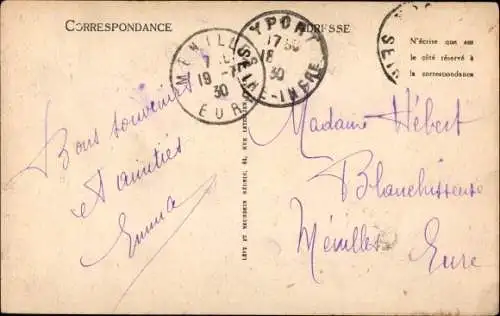 CORRESPONDANCE
ADRESSE
N'écrire que sur
le côté réservé à
la correspondance
MENILLES
19 -7
30
EURE
YPORT
18
30
SEINE-INFRE
SEIN
Bons souvenirs
et amitiés
Emma
Madame Hébert
Blanchisseuse
Ménilles Eure